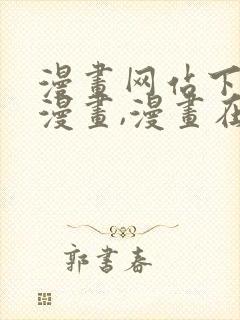 漫畫网估下
漫畫,漫畫在
郭書春